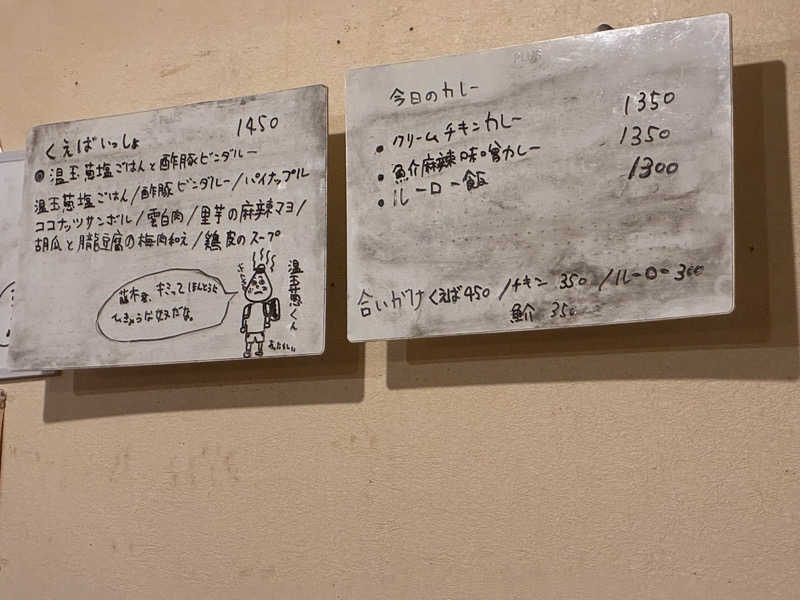 くえばいっしょ 1450
温玉葱塩ごはんと酢豚ビンダルー
温玉葱塩ごはん/酢豚ビンダルー/パイナップル
ココナッツサンボル/雲白肉/里芋の麻辣マヨ/
胡瓜と朧豆腐の梅肉和え/鶏皮のスープ
キミってほんとうに
ひきょうな奴だな。
温玉葱くん
PLUS
今日のカレー
・クリームチキンカレー 1350
・魚介麻辣味噌カレー 1350
・ルーロー飯 1300
合いがけ くえば450/チキン 350/ルーロー300
魚介 350